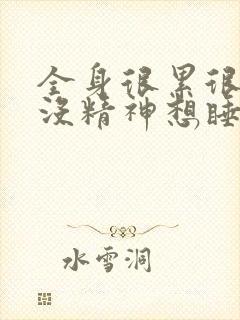 全身很累很
没精神想睡
水雪洞